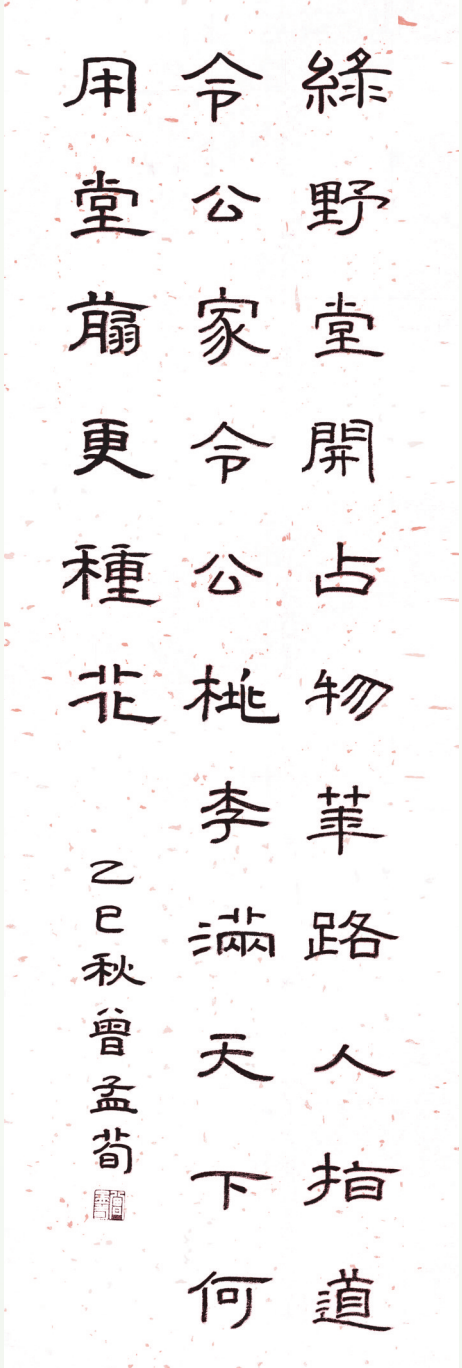 綠野堂開占物華路人指道
令公家令公桃李滿天下何
用堂前更種花
乙巳秋曾孟荀